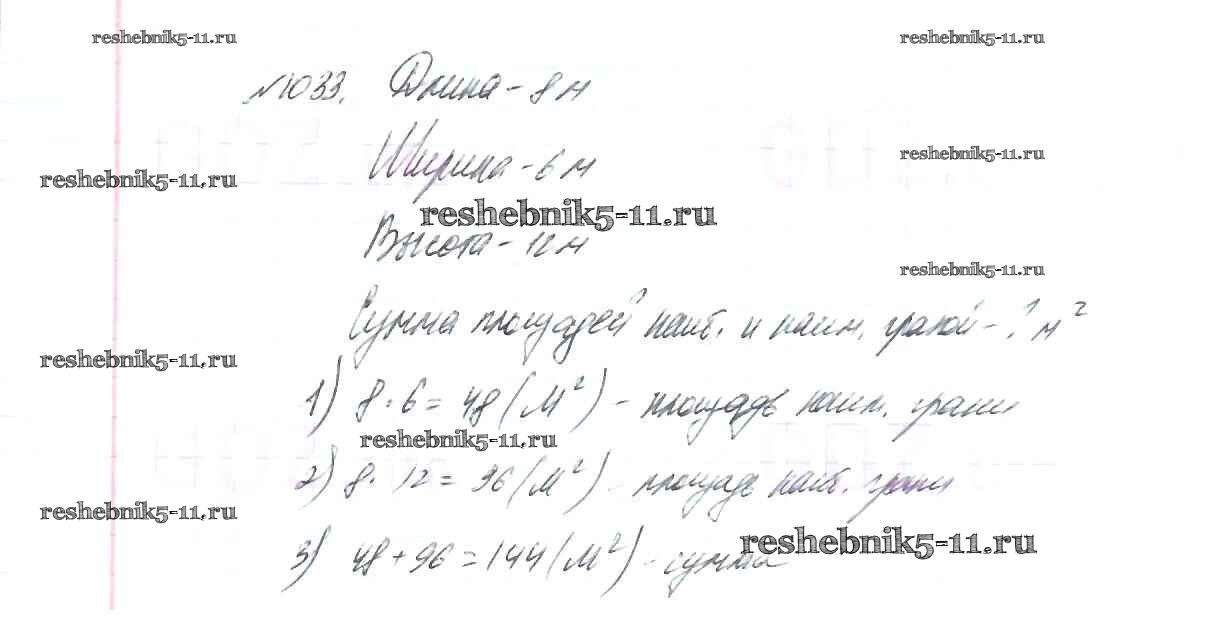 reshebnik5-11.ru
reshebnik5-11.ru
№1033. Длина - 8 м
reshebnik5-11.ru
Ширина - 6 м
reshebnik5-11.ru
reshebnik5-11.ru
Высота - 12 м
reshebnik5-11.ru
Сумма площадей наиб. и наим. граней - ? м²
reshebnik5-11.ru
1) 8 · 6 = 48 (м²) - площадь наим. грани
reshebnik5-11.ru
2) 8 · 12 = 96 (м²) - площадь наиб. грани
reshebnik5-11.ru
3) 48 + 96 = 144 (м²) - сумма
reshebnik5-11.ru